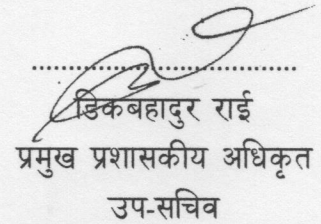 डिकबहादुर राई
प्रमुख प्रशासकीय अधिकृत
उप-सचिव